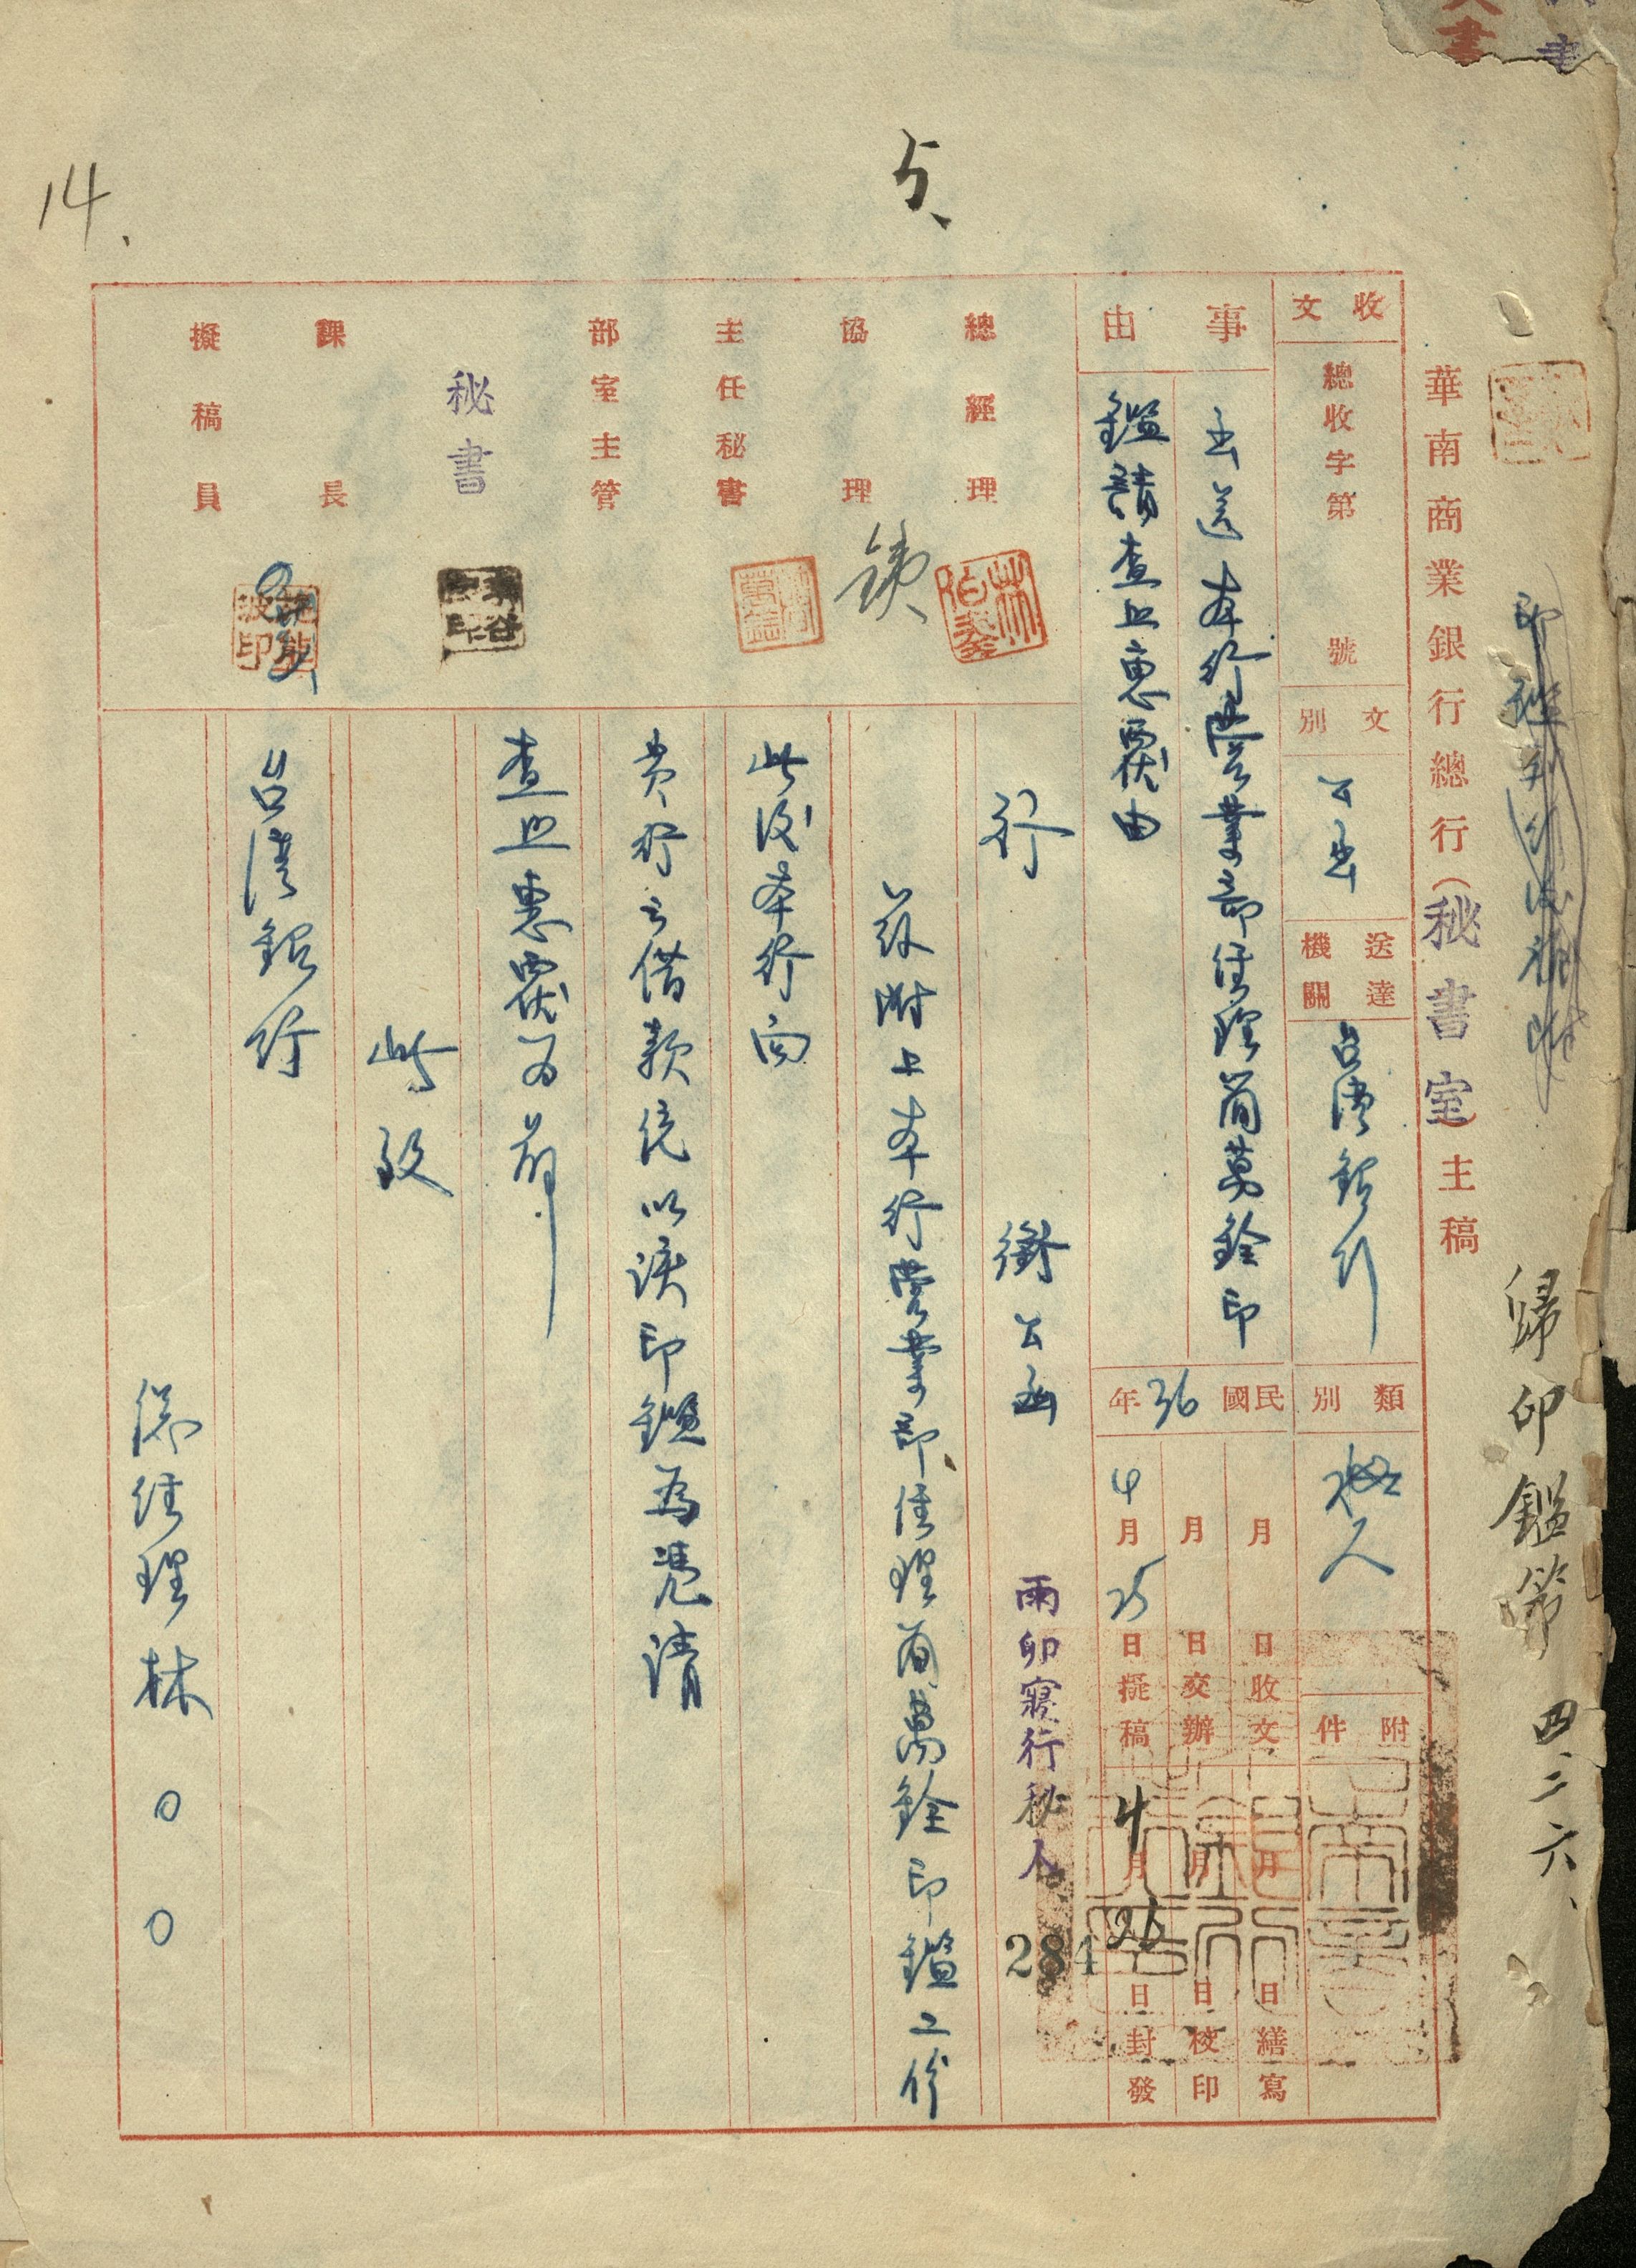 14.
歸印鑑第
四、二六、
華南商業銀行總行(秘書室)主稿
收文
總收字第 號
文別
公函
送達機關
台灣銀行
類別
秘人
附件
事由
函送本行營業部經理簡萬銓印
鑑請查照惠覆由
民國36年
月 日收文
月 日交辦
4月25日擬稿
月 日繕寫
月 日校印
4月26日封發
總經理
林
協理
主任秘書
部室主管
秘書
課長
擬稿員
行 銜公函
雨卯寢行秘人
284
茲附上本行營業部經理簡萬銓印鑑二份
此後本行向
貴行之借款統以該印鑑為憑請
查照惠覆為荷
此致
台灣銀行
總經理林〇〇